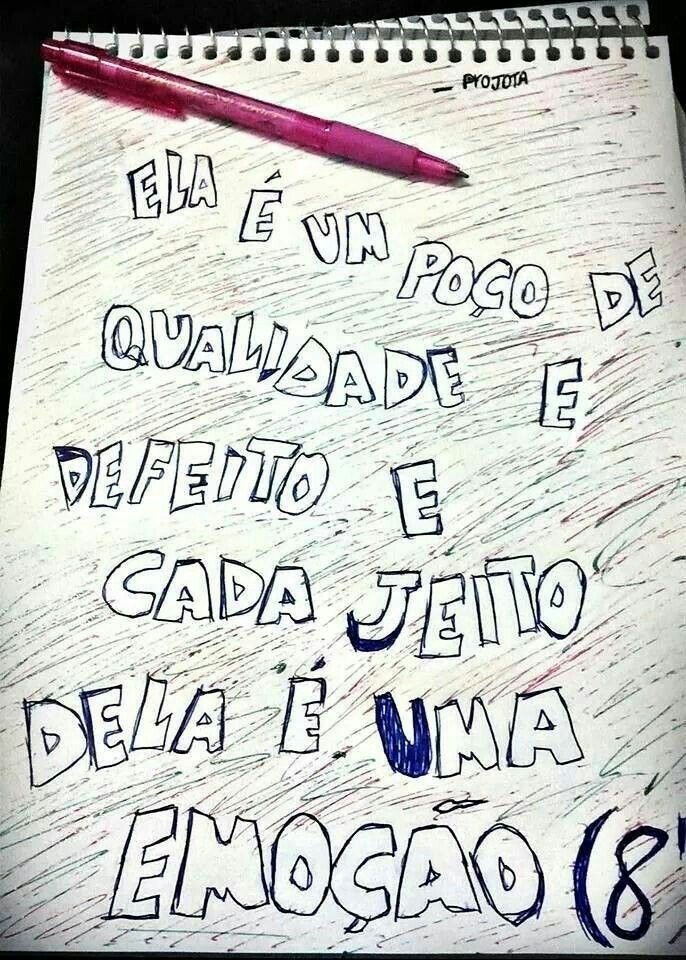 — PROJOTA
ELA É UM POÇO DE
QUALIDADE E
DEFEITO E
CADA JEITO
DELA É UMA
EMOÇÃO (8